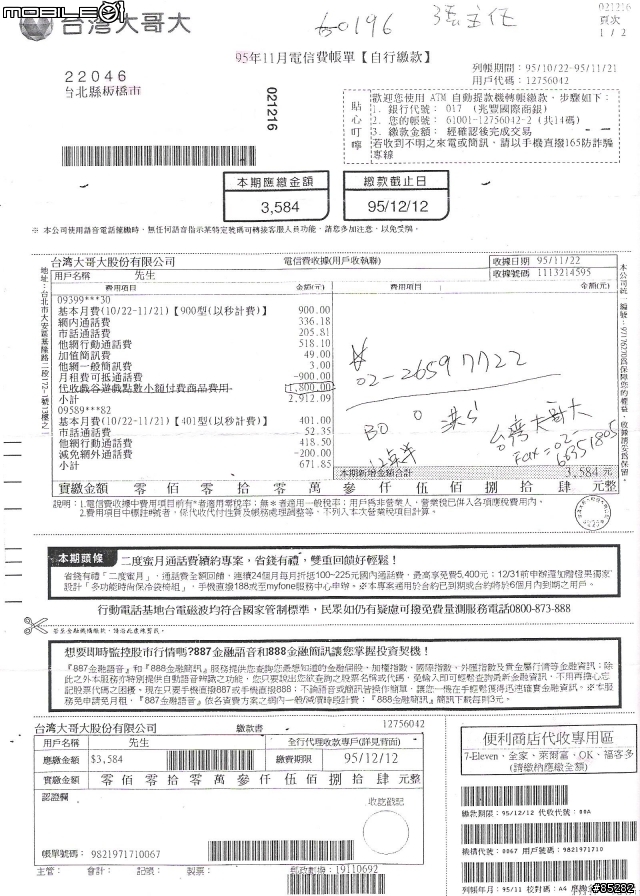 mobile01
台湾大哥大
021216
頁次
1 / 2
95年11月電信費帳單【自行繳款】
列帳期間：95/10/22-95/11/21
用戶代碼：12756042
22046
台北縣板橋市
021216
貼心叮嚀
歡迎您使用 ATM 自動提款機轉帳繳款，步驟如下：
1. 銀行代號： 017 (兆豐國際商銀)
2. 您的帳號： 61001-12756042-2 (共14碼)
3. 繳款金額： 經確認後完成交易
若收到不明之來電或簡訊，請以手機直撥165防詐騙專線
本期應繳金額
3,584
繳款截止日
95/12/12
※ 本公司使用語音電話催繳時，無任何語音指示某特定號碼可轉接客服人員功能，請您多加注意，以免受騙。
台湾大哥大股份有限公司
電信費收據(用戶收執聯)
收據日期 95/11/22
用戶名稱 先生
收據號碼 1113214595
費用項目 金額(元) 費用項目 金額(元)
09399***30
基本月費(10/22-11/21)【900型(以秒計費)】 900.00
網內通話費 336.18
市話通話費 205.81
他網行動通話費 518.10
加值簡訊費 49.00
他網一般簡訊費 3.00
月租費可抵通話費 -900.00
代收戲谷遊戲點數小額付費商品費用 1,800.00
小計 2,912.09
09589***82
基本月費(10/22-11/21)【401型(以秒計費)】 401.00
市話通話費 52.35
他網行動通話費 418.50
減免網外通話費 -200.00
小計 671.85
02-2659 7722
台湾大哥大
Fax = 02-
66351805
本期新增金額合計 3,584 元
實繳金額 零 佰 零 拾 零 萬 參 仟 伍 佰 捌 拾 肆 元整
說明：1.電信費收據中費用項目前有*者適用零稅率；無*者適用一般稅率；用戶爲非營業人，營業稅已併入各項應稅費用內。
2.費用項目中標註#號者，係代收代付性質及帳務處理調整等，不列入本次營業稅項目計算。
本期頭條
二度蜜月通話費續約專案，省錢有禮，雙重回饋好輕鬆！
省錢有禮「二度蜜月」，通話費全額回饋，連續24個月每月折抵100~225元國內通話費，最高享免費5,400元；12/31前申辦還加贈橙果獨家
設計「多功能時尚保冷袋椅組」，手機直撥188或至myfone服務中心申辦。※本專案適用於合約已到期或合約將於6個月內到期之用戶。
行動電話基地台電磁波均符合國家管制標準，民眾如仍有疑慮可撥免費量測服務電話0800-873-888
若至金融機構繳款，請沿此虛線剪裁。
想要即時監控股市行情嗎?887金融語音和888金融簡訊讓您掌握投資契機！
『887金融語音』和『888金融簡訊』服務提供您查詢您最想知道的金融個股、加權指數、國際指數、外匯指數及貴金屬行情等金融資訊；除
此之外本服務亦特別提供自動語音辨識之功能，您只要說出您欲查詢的股票名稱或代碼，免輸入即可輕鬆查詢最新金融資訊，不用再擔心忘
記股票代碼之困擾。現在只要手機直撥887或手機直撥888；不論語音或簡訊皆操作簡單，讓您一機在手輕鬆獲得迅速確實金融資訊。※本服
務免申請免月租，『887金融語音』依各資費方案之網內一般/減價時段計費；『888金融簡訊』簡訊下載每則3元。
台湾大哥大股份有限公司 繳款書 12756042
用戶名稱 先生 全行代理收款專戶(詳見背面)
應繳金額 $3,584 繳費期限 95/12/12
實繳金額 零 佰 零 拾 零 萬 參 仟 伍 佰 捌 拾 肆 元整
認證欄
收訖戳記
帳單號碼： 9821971710067
主管： 會計： 記帳： 製票： 郵政劃撥：19110692
便利商店代收專用區
7-Eleven、全家、萊爾富、OK、福客多
(請繳納應繳金額)
繳款期限：95/12/12 代收代號：88A
機構代號：0067 用戶號碼：9821971710
列帳年月：95/11 校對碼：A4
#85232